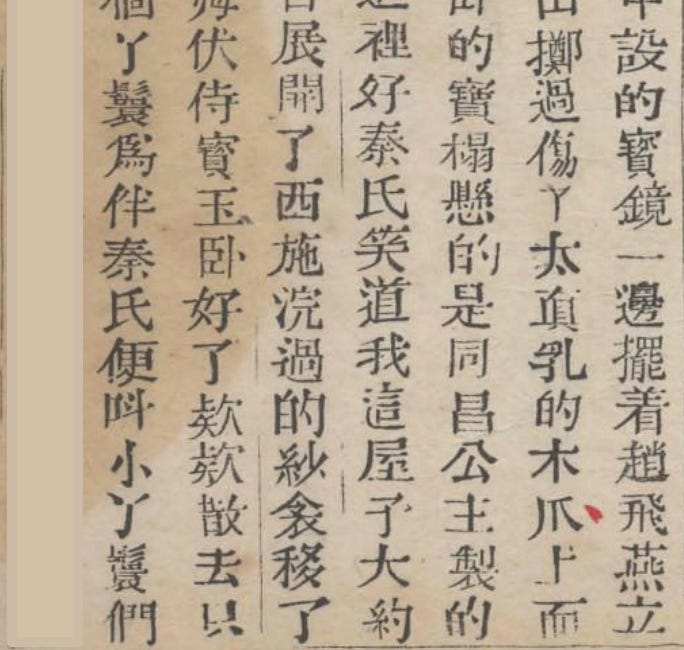 中設的寶鏡一邊擺着趙飛燕立
山擲過傷了太眞乳的木瓜上面
卧的寶榻懸的是同昌公主製的
這裡好秦氏笑道我這屋子大約
展開了西施浣過的紗衾移了
伏侍寳玉卧好了欵欵散去只
個丫鬟爲伴秦氏便呌小丫鬟們